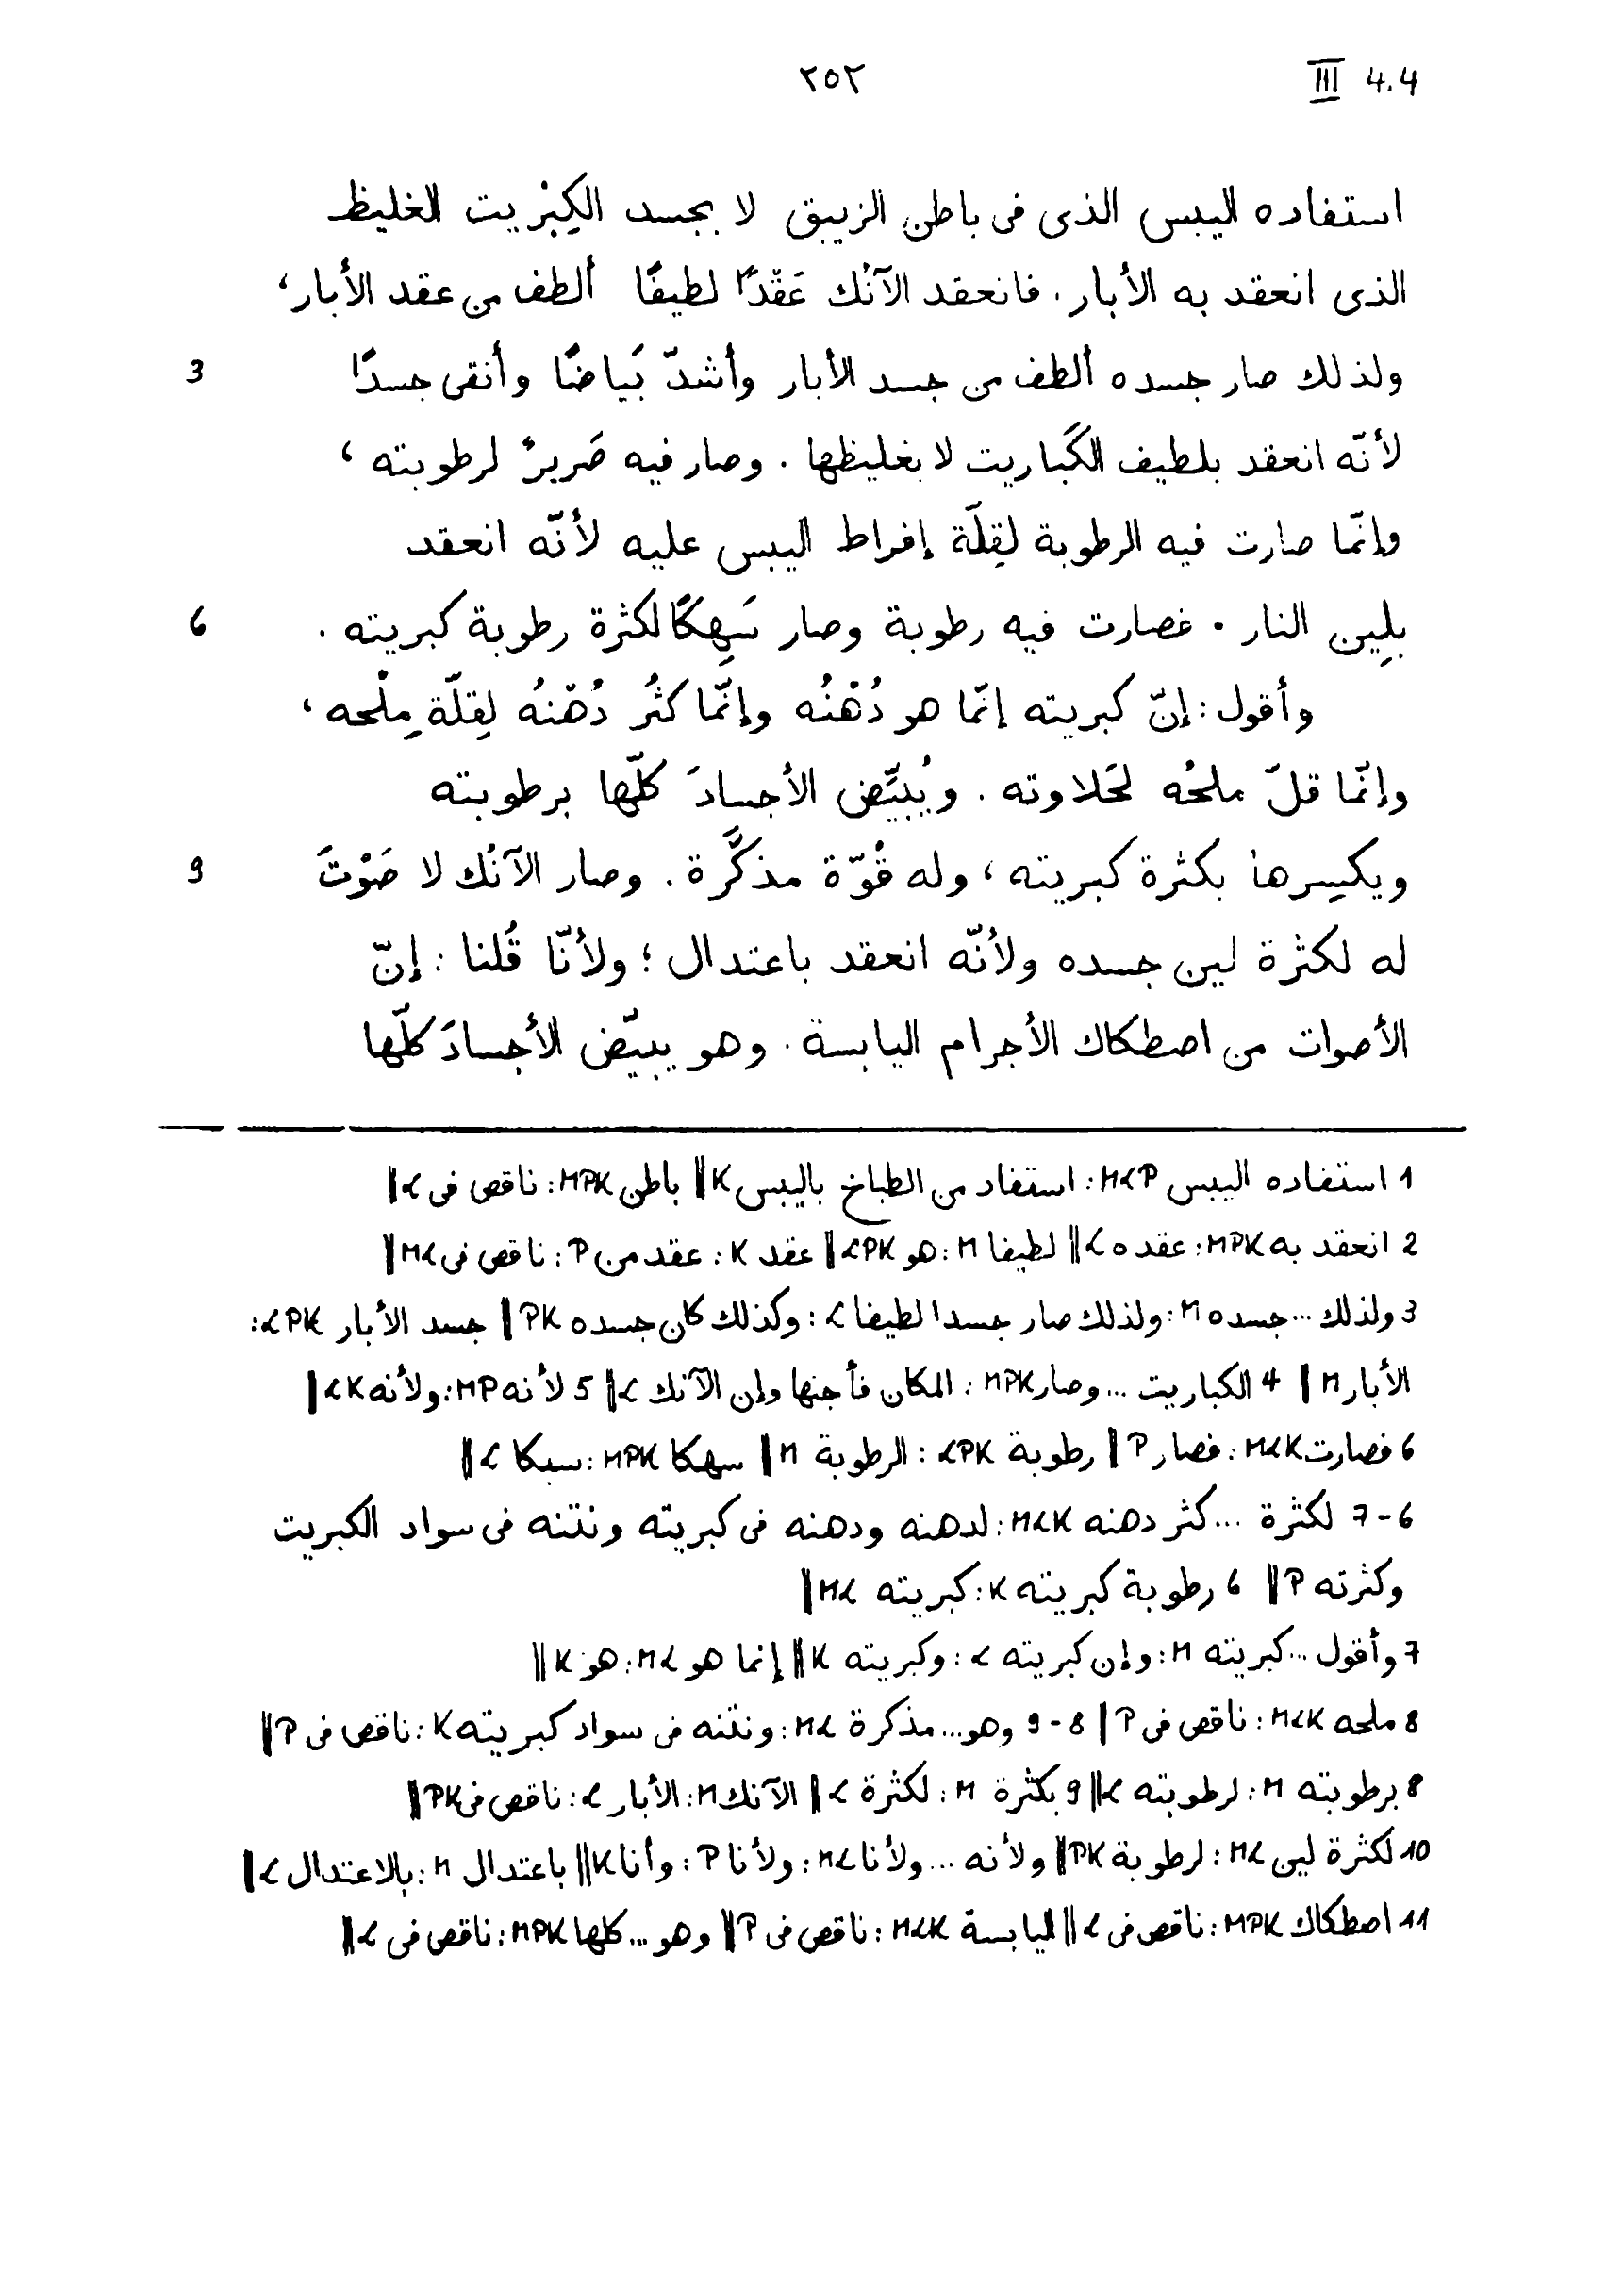 ٢٥٢ III 4.4
استفاده اليبس الذى فى باطن الزيبق لا بجسد الكِبْريت الغليظ
الذى انعقد به الأبار. فانعقد الآنُك عَقْدًا لطيفًا ألطف من عقد الأبار،
ولذلك صار جسده ألطف من جسد الأبار وأشدّ بَياضًا وأنقى جسدًا 3
لأنّه انعقد بلطيف الكَباريت لا بغليظها. وصار فيه صَريرٌ لرطوبته،
وإنّما صارت فيه الرطوبة لقِلّة إفراط اليبس عليه لأنّه انعقد
بلِين النار. فصارت فيه رطوبة وصار سَهِكًا لكثرة رطوبة كبريته. 6
وأقول: إنّ كبريته إنّما هو دُهْنُه وإنّما كثُر دُهْنُه لِقلّة مِلْحه،
وإنّما قلّ ملحُه لحَلاوته. ويُبيِّض الأجسادَ كلّها برطوبته
ويكسِرها بكثرة كبريته، وله قُوّة مذكَّرة. وصار الآنُك لا صَوْتَ 9
له لكثرة لين جسده ولأنّه انعقد باعتدال؛ ولأنّا قُلنا: إنّ
الأصوات من اصطكاك الأجرام اليابسة. وهو يبيّض الأجسادَ كلّها
1 استفاده اليبس MLP: استفاد من الطباخ باليبس K‖ باطن MPK: ناقص فى L‖
2 انعقد به MPK: عقده L‖ لطيفا M: هو LPK‖ عقد K: عقد من P: ناقص فى ML‖
3 ولذلك...جسده M: ولذلك صار جسدا لطيفا L: وكذلك كان جسده PK‖ جسد الأبار LPK:
الأبار M‖ 4 الكباريت...وصار MPK: المكان فأجنها وإن الآنك L‖ 5 لأنه MP: ولأنه LK‖
6 فصارت MLK: فصار P‖ رطوبة LPK: الرطوبة M‖ سهكا MPK: سبكا L‖
6-7 لكثرة...كثر دهنه MLK: لدهنه ودهنه فى كبريته ونتنه فى سواد الكبريت
وكثرته P‖ 6 رطوبة كبريته K: كبريته ML‖
7 وأقول...كبريته M: وإن كبريته L: وكبريته K‖ إنما هو ML: هو K‖
8 ملحه MLK: ناقص فى P‖ 8-9 وهو...مذكرة ML: ونتنه فى سواد كبريته K: ناقص فى P‖
8 برطوبته M: لرطوبته L‖ 9 بكثرة M: لكثرة L‖ الآنك M: الأبار L: ناقص فى PK‖
10 لكثرة لين ML: لرطوبة PK‖ ولأنه...ولأنا ML: ولأنا P: وأنا K‖ باعتدال M: بالاعتدال L‖
11 اصطكاك MPK: ناقص فى L‖ اليابسة MLK: ناقص فى P‖ وهو...كلها MPK: ناقص فى L‖